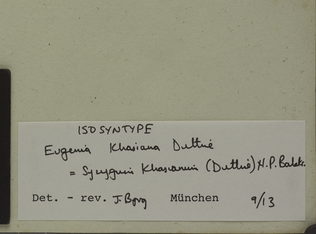 ISOSYNTYPE
Eugenia Khasiana Duthie
= Syzygium Khasianum (Duthie) N.P.Balakr.
Det. - rev. J. Byng München 9/13